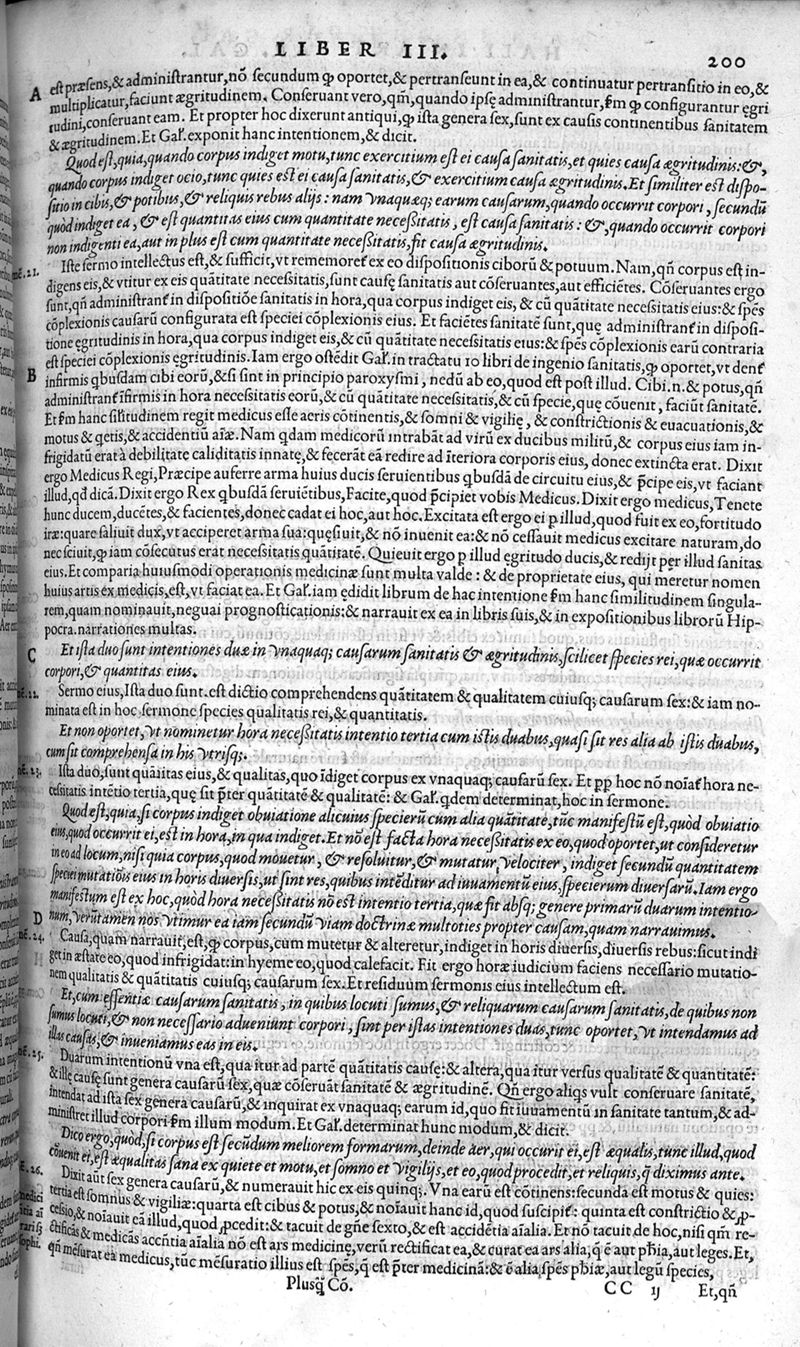 LIBER III.
200
A
est præsens,& administrantur,nõ secundum ꝙ oportet,& pertranseunt in ea,& continuatur pertransitio in eo,&
multiplicatur,faciunt ægritudinem. Conseruant vero,qm̃,quando ipsę administrantur,fm ꝙ configurantur egri
tudini,conseruant eam. Et propter hoc dixerunt antiqui,ꝙ ista genera sex,sunt ex causis continentibus sanitatem
& ægritudinem.Et Gal̃. exponit hanc intentionem,& dicit.
Quod est,quia,quando corpus indiget motu,tunc exercitium est ei causa sanitatis,et quies causa ægritudinis:&,
quando corpus indiget ocio,tunc quies est ei causa sanitatis,& exercitium causa ægritudinis.Et similiter est dispo-
sitio in cibis,& potibus,& reliquis rebus alijs: nam vnaquæq; earum causarum,quando occurrit corpori, secundũ
quòd indiget ea, & est quantitas eius cum quantitate necessitatis, est causa sanitatis: &,quando occurrit corpori
non indigenti ea,aut in plus est cum quantitate necessitatis,fit causa ægritudinis.
21.
Iste sermo intellectus est,& sufficit,vt rememoret̃ ex eo dispositionis ciborũ & potuum. Nam,qñ corpus est in-
digens eis,& vtitur ex eis quãtitate necessitatis,sunt causę sanitatis aut cõseruantes,aut efficiẽtes. Cõseruantes ergo
sunt,qñ administrant̃ in dispositiõe sanitatis in hora,qua corpus indiget eis,& cũ quãtitate necessitatis eius:& spẽs
cõplexionis causarũ configurata est speciei cõplexionis eius. Et faciẽtes sanitatẽ sunt,quę administrant̃ in disposi-
tione ęgritudinis in hora,qua corpus indiget eis,& cũ quãtitate necessitatis eius:& spẽs cõplexionis earũ contraria
est speciei cõplexionis ęgritudinis.Iam ergo ostẽdit Gal̃.in tractatu 10 libri de ingenio sanitatis,ꝙ oportet,vt dent̃
B
infirmis qbusdam cibi eorũ,&si sint in principio paroxysmi, nedũ ab eo,quod est post illud. Cibi.n.& potus,qñ
administrant̃ ĩfirmis in hora necessitatis eorũ,& cũ quãtitate necessitatis,& cũ specie,quę cõuenit, faciũt sanitatẽ.
Et fm hanc silitudinem regit medicus esse aeris cõtinentis,& somni & vigilię, & constrictionis & euacuationis,&
motus & qetis,& accidentiũ aĩæ. Nam qdam medicorũ intrabãt ad virũ ex ducibus militũ,& corpus eius iam in-
frigidatũ erat à debilitate caliditatis innatę,& fecerãt eã redire ad ĩteriora corporis eius, donec extincta erat. Dixit
ergo Medicus Regi,Præcipe auferre arma huius ducis seruientibus qbusdã de circuitu eius,& p̃cipe eis,vt faciant
illud,qd dicã. Dixit ergo Rex qbusdã seruiẽtibus,Facite,quod p̃cipiet vobis Medicus.Dixit ergo medicus,Tenete
hunc ducem,ducẽtes,& facientes,donec cadat ei hoc,aut hoc.Excitata est ergo ei p illud,quod fuit ex eo,fortitudo
iræ:quare saliuit dux,vt acciperet arma sua:quęsiuit,& nõ inuenit ea:& nõ cessauit medicus excitare naturam,do
nec sciuit,ꝙ iam cõsecutus erat necessitatis quãtitatẽ. Quieuit ergo p illud ęgritudo ducis,& redijt per illud sanitas
eius.Et comparia huiusmodi operationis medicinæ sunt multa valde : & de proprietate eius, qui meretur nomen
huius artis ex medicis,est,vt faciat ea. Et Gal̃.iam ędidit librum de hac intentione fm hanc similitudinem singula-
rem,quam nominauit,neguai prognosticationis:& narrauit ex ea in libris suis,& in expositionibus librorũ Hip-
pocra.narrationes multas.
C
Et ista duo sunt intentiones duæ in vnaquaq; causarum sanitatis & ægritudinis,scilicet species rei,quæ occurrit
corpori,& quantitas eius.
22.
Sermo eius,Ista duo sunt.est dictio comprehendens quãtitatem & qualitatem cuiusq; causarum sex:& iam no-
minata est in hoc sermone species qualitatis rei,& quantitatis.
Et non oportet,vt nominetur hora necessitatis intentio tertia cum istis duabus,quasi sit res alia ab istis duabus,
cum sit comprehensa in his vtrisq;.
23.
Ista duo,sunt quãtitas eius,& qualitas,quo ĩdiget corpus ex vnaquaq; causarũ sex. Et pp hoc nõ noĩat̃ hora ne-
cessitatis intẽtio tertia,quę sit p̃ter quãtitatẽ & qualitatẽ: & Gal̃.qdem determinat,hoc in sermone.
Quod est,quia,si corpus indiget obuiatione alicuius specierũ cum alia quãtitate,tũc manifestũ est,quòd obuiatio
eius,quod occurrit ei,est in hora,in qua indiget.Et nõ est facta hora necessitatis ex eo,quod oportet,ut consideretur
in eo ad locum,nisi quia corpus,quod mouetur, & resoluitur,& mutatur,velociter, indiget secundũ quantitatem
speciei mutationis eius in horis diuersis,ut sint res,quibus intẽditur ad iuuamentũ eius,specierum diuersarũ.Iam ergo
manifestum est ex hoc,quòd hora necessitatis nõ est intentio tertia,quæ fit absq; genere primarũ duarum intentio-
D
num,verũtamen nos vtimur ea iam secundũ viam doctrinæ multoties propter causam,quam narrauimus.
24.
Causa,quam narrauit,est,ꝙ corpus,cum mutetur & alteretur,indiget in horis diuersis,diuersis rebus:sicut indi
get in æstate eo,quod infrigidat:in hyeme eo,quod calefacit. Fit ergo horæ iudicium faciens necessario mutatio-
nem qualitatis & quãtitatis cuiusq; causarum sex.Et residuum sermonis eius intellectum est.
Et,cum essentiæ causarum sanitatis, in quibus locuti sumus,& reliquarum causarum sanitatis,de quibus non
sumus locuti,& non necessario adueniunt corpori, sint per istas intentiones duas,tunc oportet,vt intendamus ad
illas causas,& inueniamus eas in eis.
25.
Duarum intentionũ vna est,qua itur ad partẽ quãtitatis causę:& altera,qua itur versus qualitatẽ & quantitatẽ:
& ille causę sunt genera causarũ sex,quæ cõseruãt sanitatẽ & ægritudinẽ. Qñ ergo aliqs vult conseruare sanitatẽ,
intendat ad ista sex genera causarũ,& inquirat ex vnaquaq; earum id,quo fit iuuamentũ in sanitate tantum,& ad-
ministret illud corpori fm illum modum.Et Gal̃.determinat hunc modum,& dicit.
Dico ergo,quod,si corpus est secũdum meliorem formarum,deinde aer,qui occurit ei,est æqualis,tunc illud,quod
conuenit ei,est æqualitas sana ex quiete et motu,et somno et vigilijs,et eo,quod procedit,et reliquis,q̃ diximus ante.
26.
Dixit aũt sex genera causarũ,& numerauit hic ex eis quinq;. Vna earũ est cõtinens:secunda est motus & quies:
tertia est somnus & vigiliæ:quarta est cibus & potus,& noĩauit hanc id,quod suscipit̃: quinta est constrictio & p-
cessio,& noĩauit eã illud,quod pcedit:& tacuit de gñe sexto,& est accidẽtia aĩalia.Et nõ tacuit de hoc,nisi qm̃ re-
ctificas & medicas accñtia aĩalia nõ est ars medicinę,verũ rectificat ea,& curat ea ars alia,q̃ ẽ aut phĩa,aut leges.Et,
qñ mẽsurat ea medicus,tũc mẽsuratio illius est spẽs,q̃ est p̃ter medicinã:& ẽ alia spẽs phĩæ,aut legũ species,
Plusq̃ Cõ.
CC ij
Et,qñ